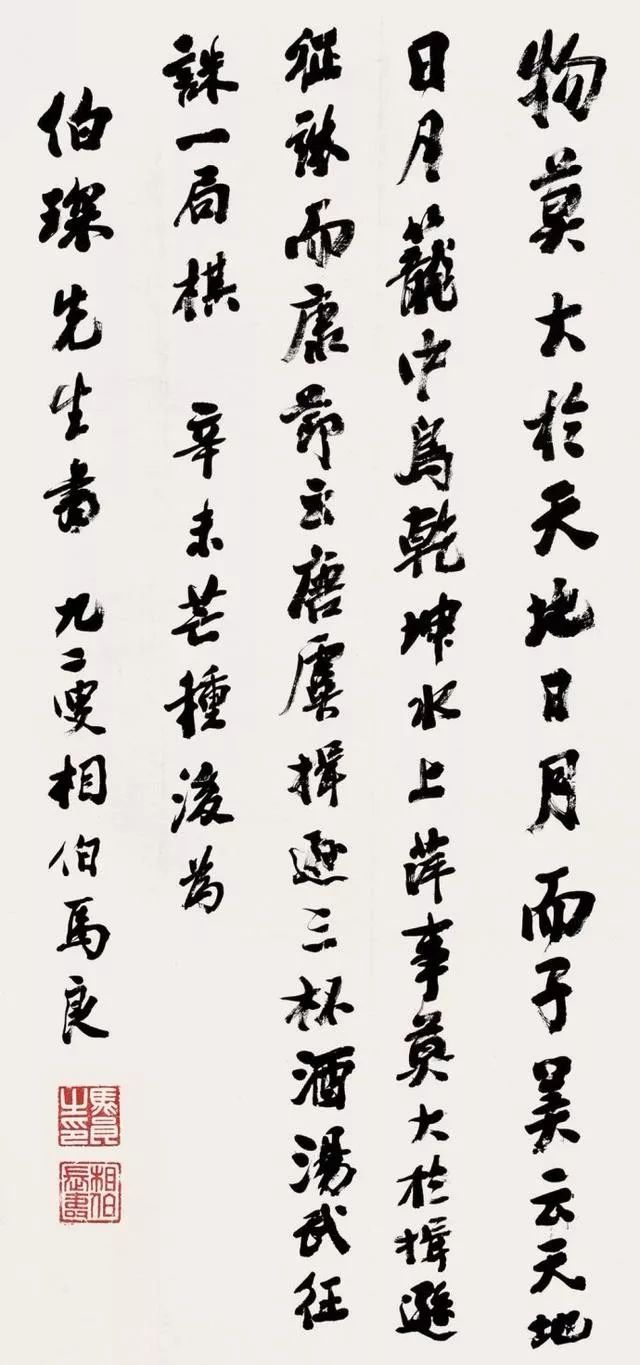 物莫大於天地日月而子美云天地
日月籠中鳥乾坤水上萍事莫大於揖遜
征誅而康節云唐虞揖遜三杯酒湯武征
誅一局棋 辛未芒種後為
伯琛先生書 九二叟相伯馬良
馬良之印
相伯長壽